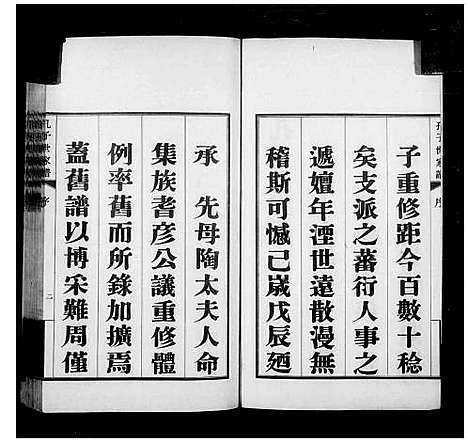 孔子世家譜
序
子重修距今百數十稔
矣支派之蕃衍人事之
遞嬗年湮世遠散漫無
稽斯可憾已歲戊辰廼
承　先母陶太夫人命
集族耆彥公議重修體
例率舊而所錄加擴焉
蓋舊譜以博采難周僅
孔子世家譜
序
二